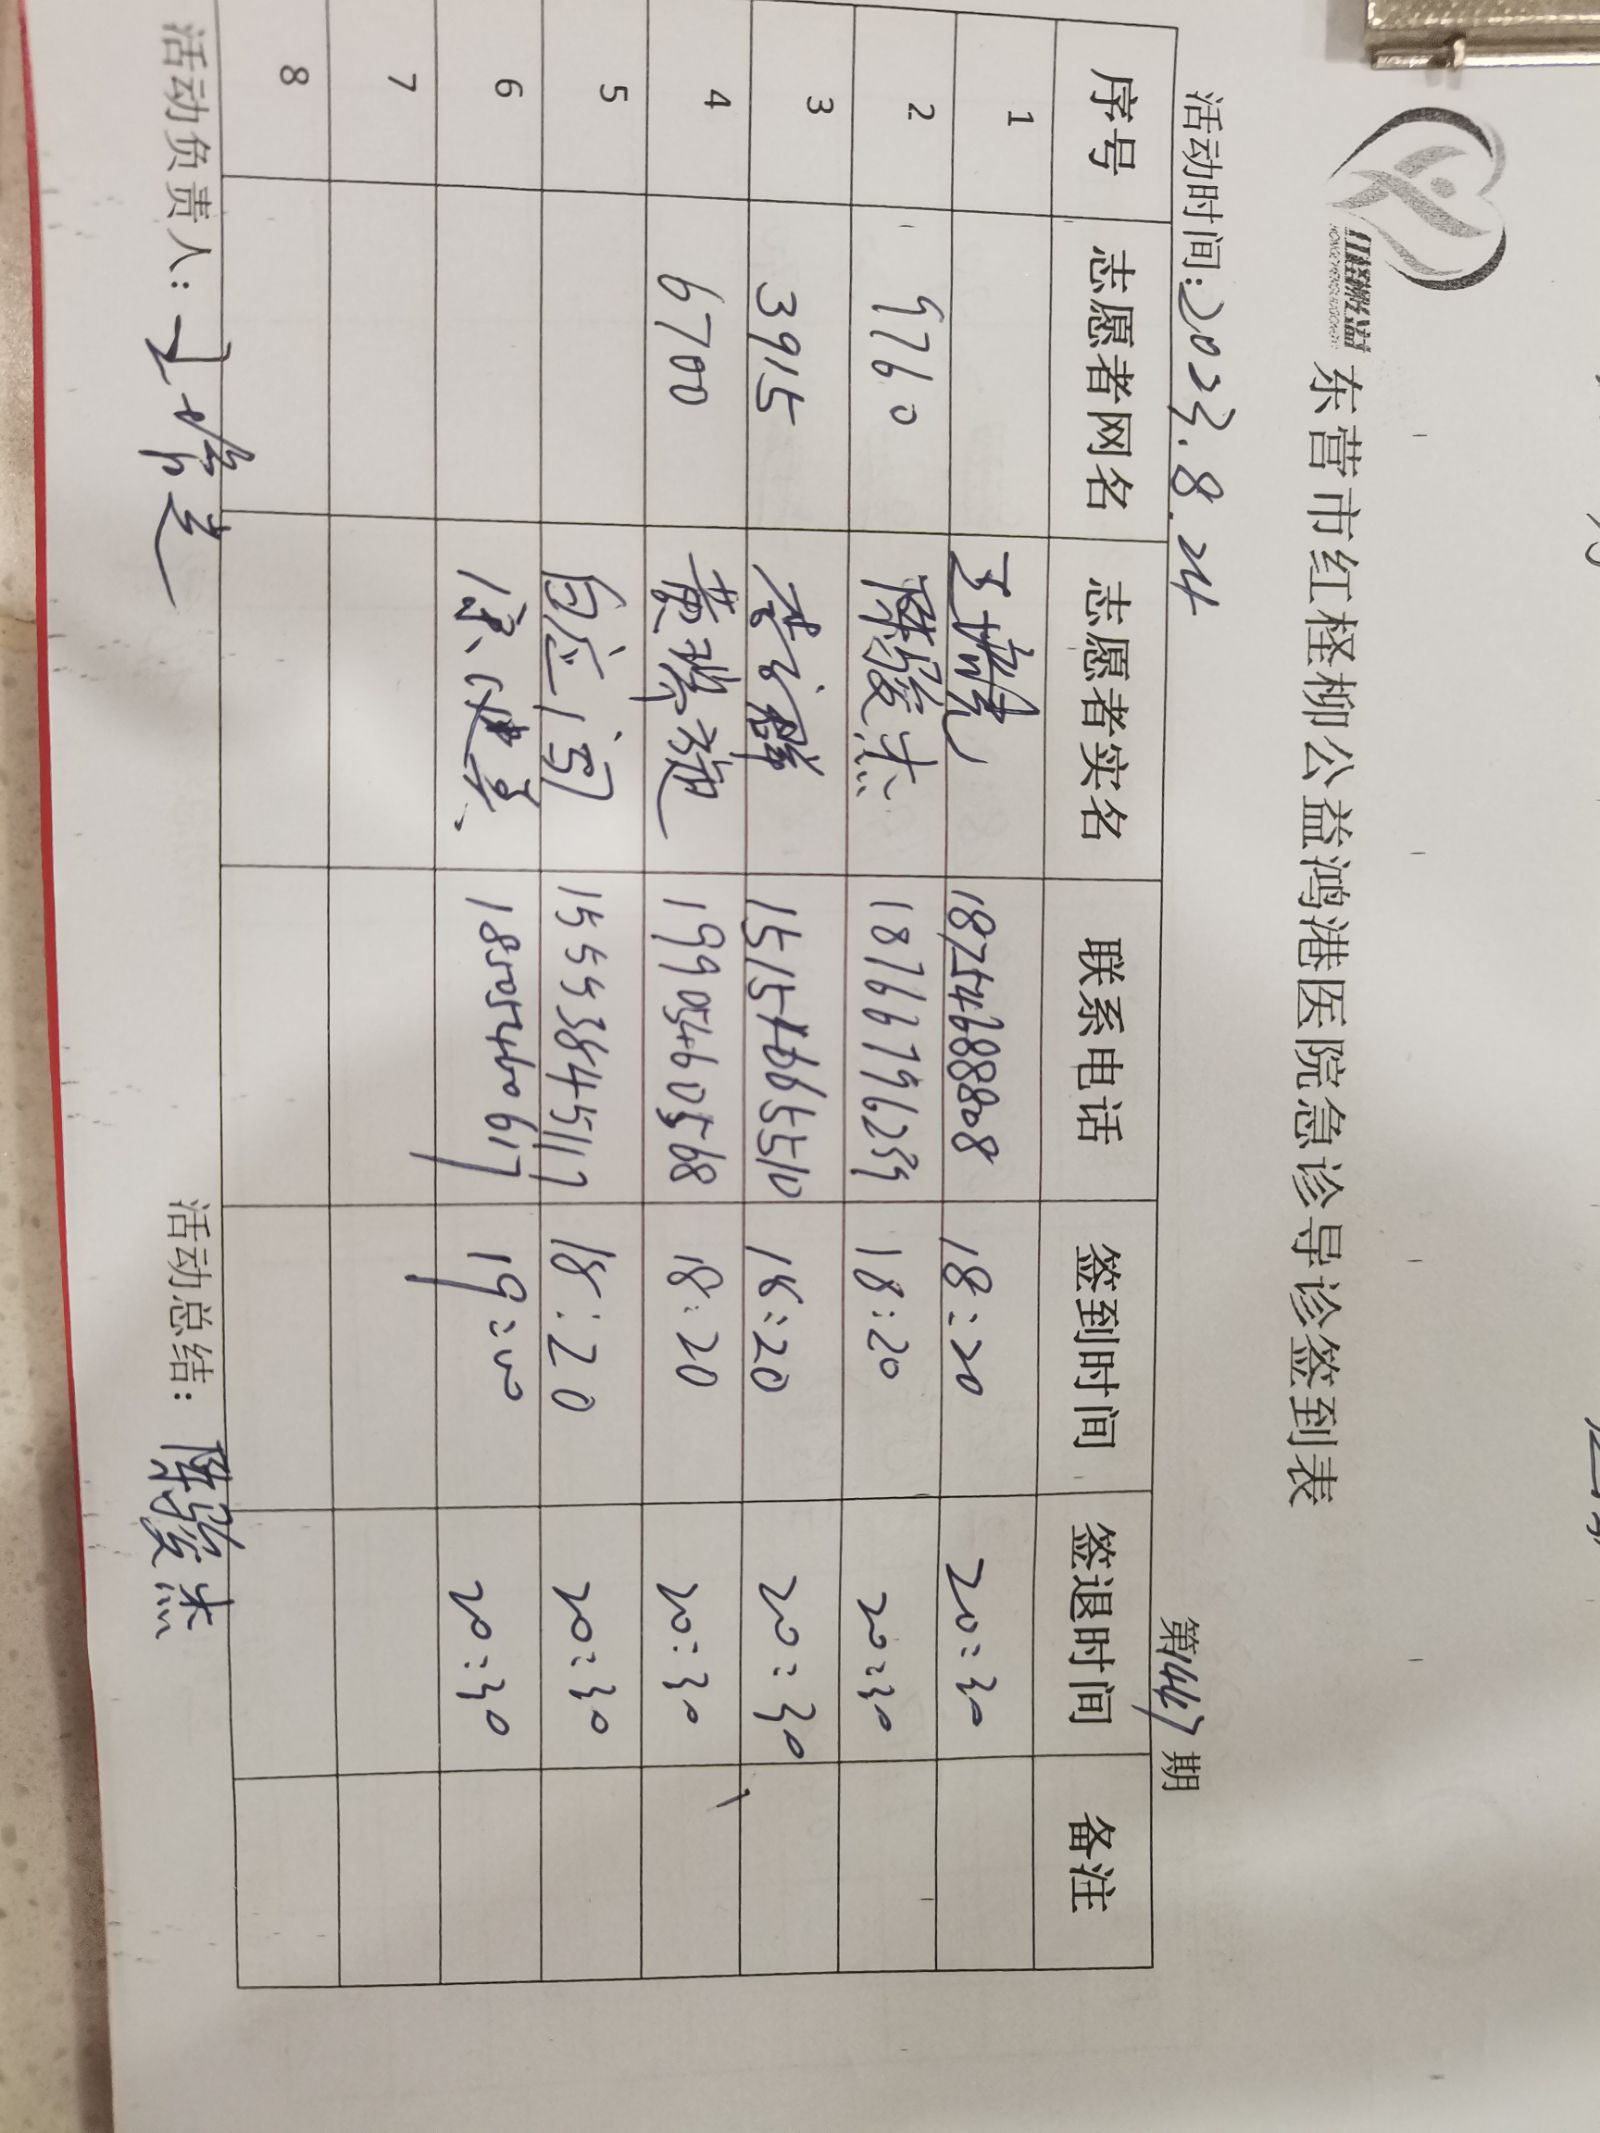 东营市红柽柳公益鸿港医院急诊导诊签到表
活动时间:2023.8.24 第1447期
序号 志愿者网名 志愿者实名 联系电话 签到时间 签退时间 备注
1 18754688808 18:20 20:30
2 9760 陈骏杰 18766796239 18:20 20:30
3 3915 15154665510 18:20 20:30
4 6700 19905460568 18:20 20:30
5 15553845117 18:20 20:30
6 18505460617 19:00 20:30
7
8
活动负责人: 活动总结: 陈骏杰